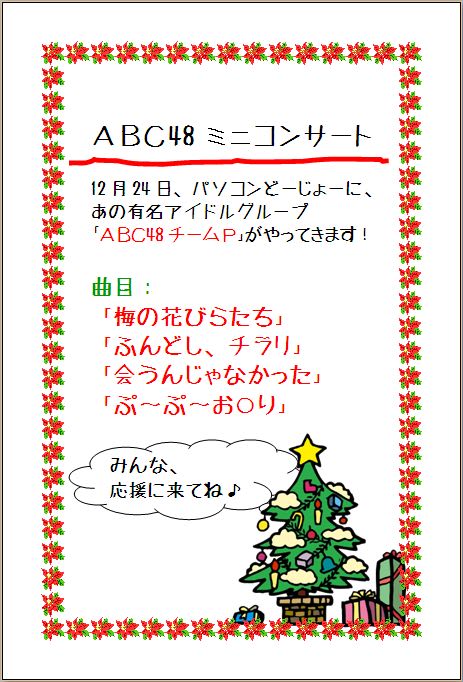 ABC48 ミニコンサート
12月24日、パソコンどーじょーに、
あの有名アイドルグループ
「ABC48チームP」がやってきます！
曲目：
「梅の花びらたち」
「ふんどし、チラリ」
「会うんじゃなかった」
「ぷ～ぷ～お○り」
みんな、
応援に来てね♪